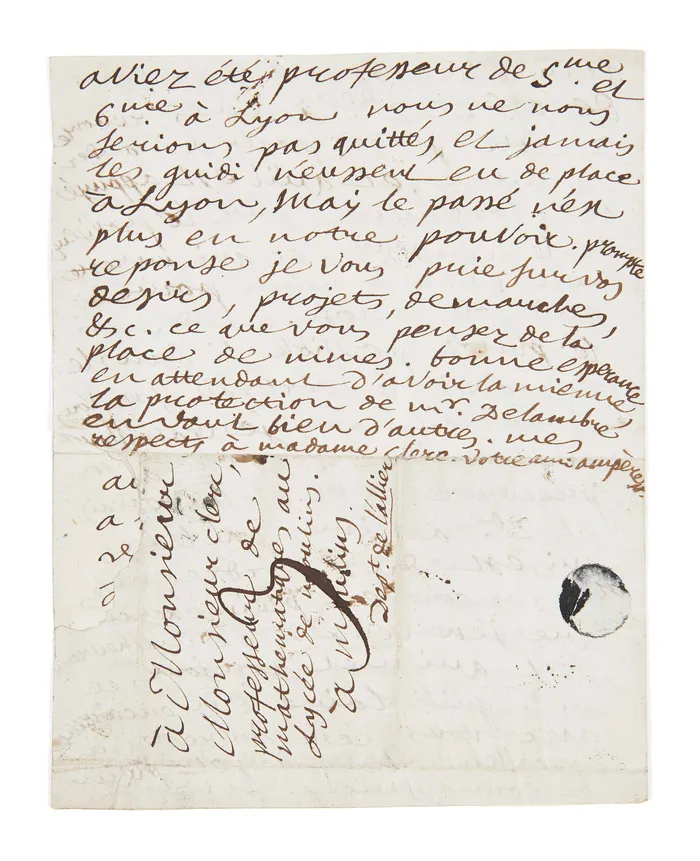 aviez été professeur de 5me et
6me à Lyon nous ne nous
serions pas quittés, et jamais
les guidi n'eussent eu de place
à Lyon, Mais le passé n'est
plus en notre pouvoir. prompte
reponse je vous prie sur vos
desirs, projets, demarches,
&c. ce que vous pensez de la
place de nimes. bonne espérance
en attendant d'avoir la mienne
la protection de mr. Delambre
en vaut bien d'autres. mes
respects à madame clerc. votre ami ampère
à Monsieur
Monsieur clerc,
professeur de
mathématiques au
Lycée de moulins.
à moulins.
Dept. de l'allier